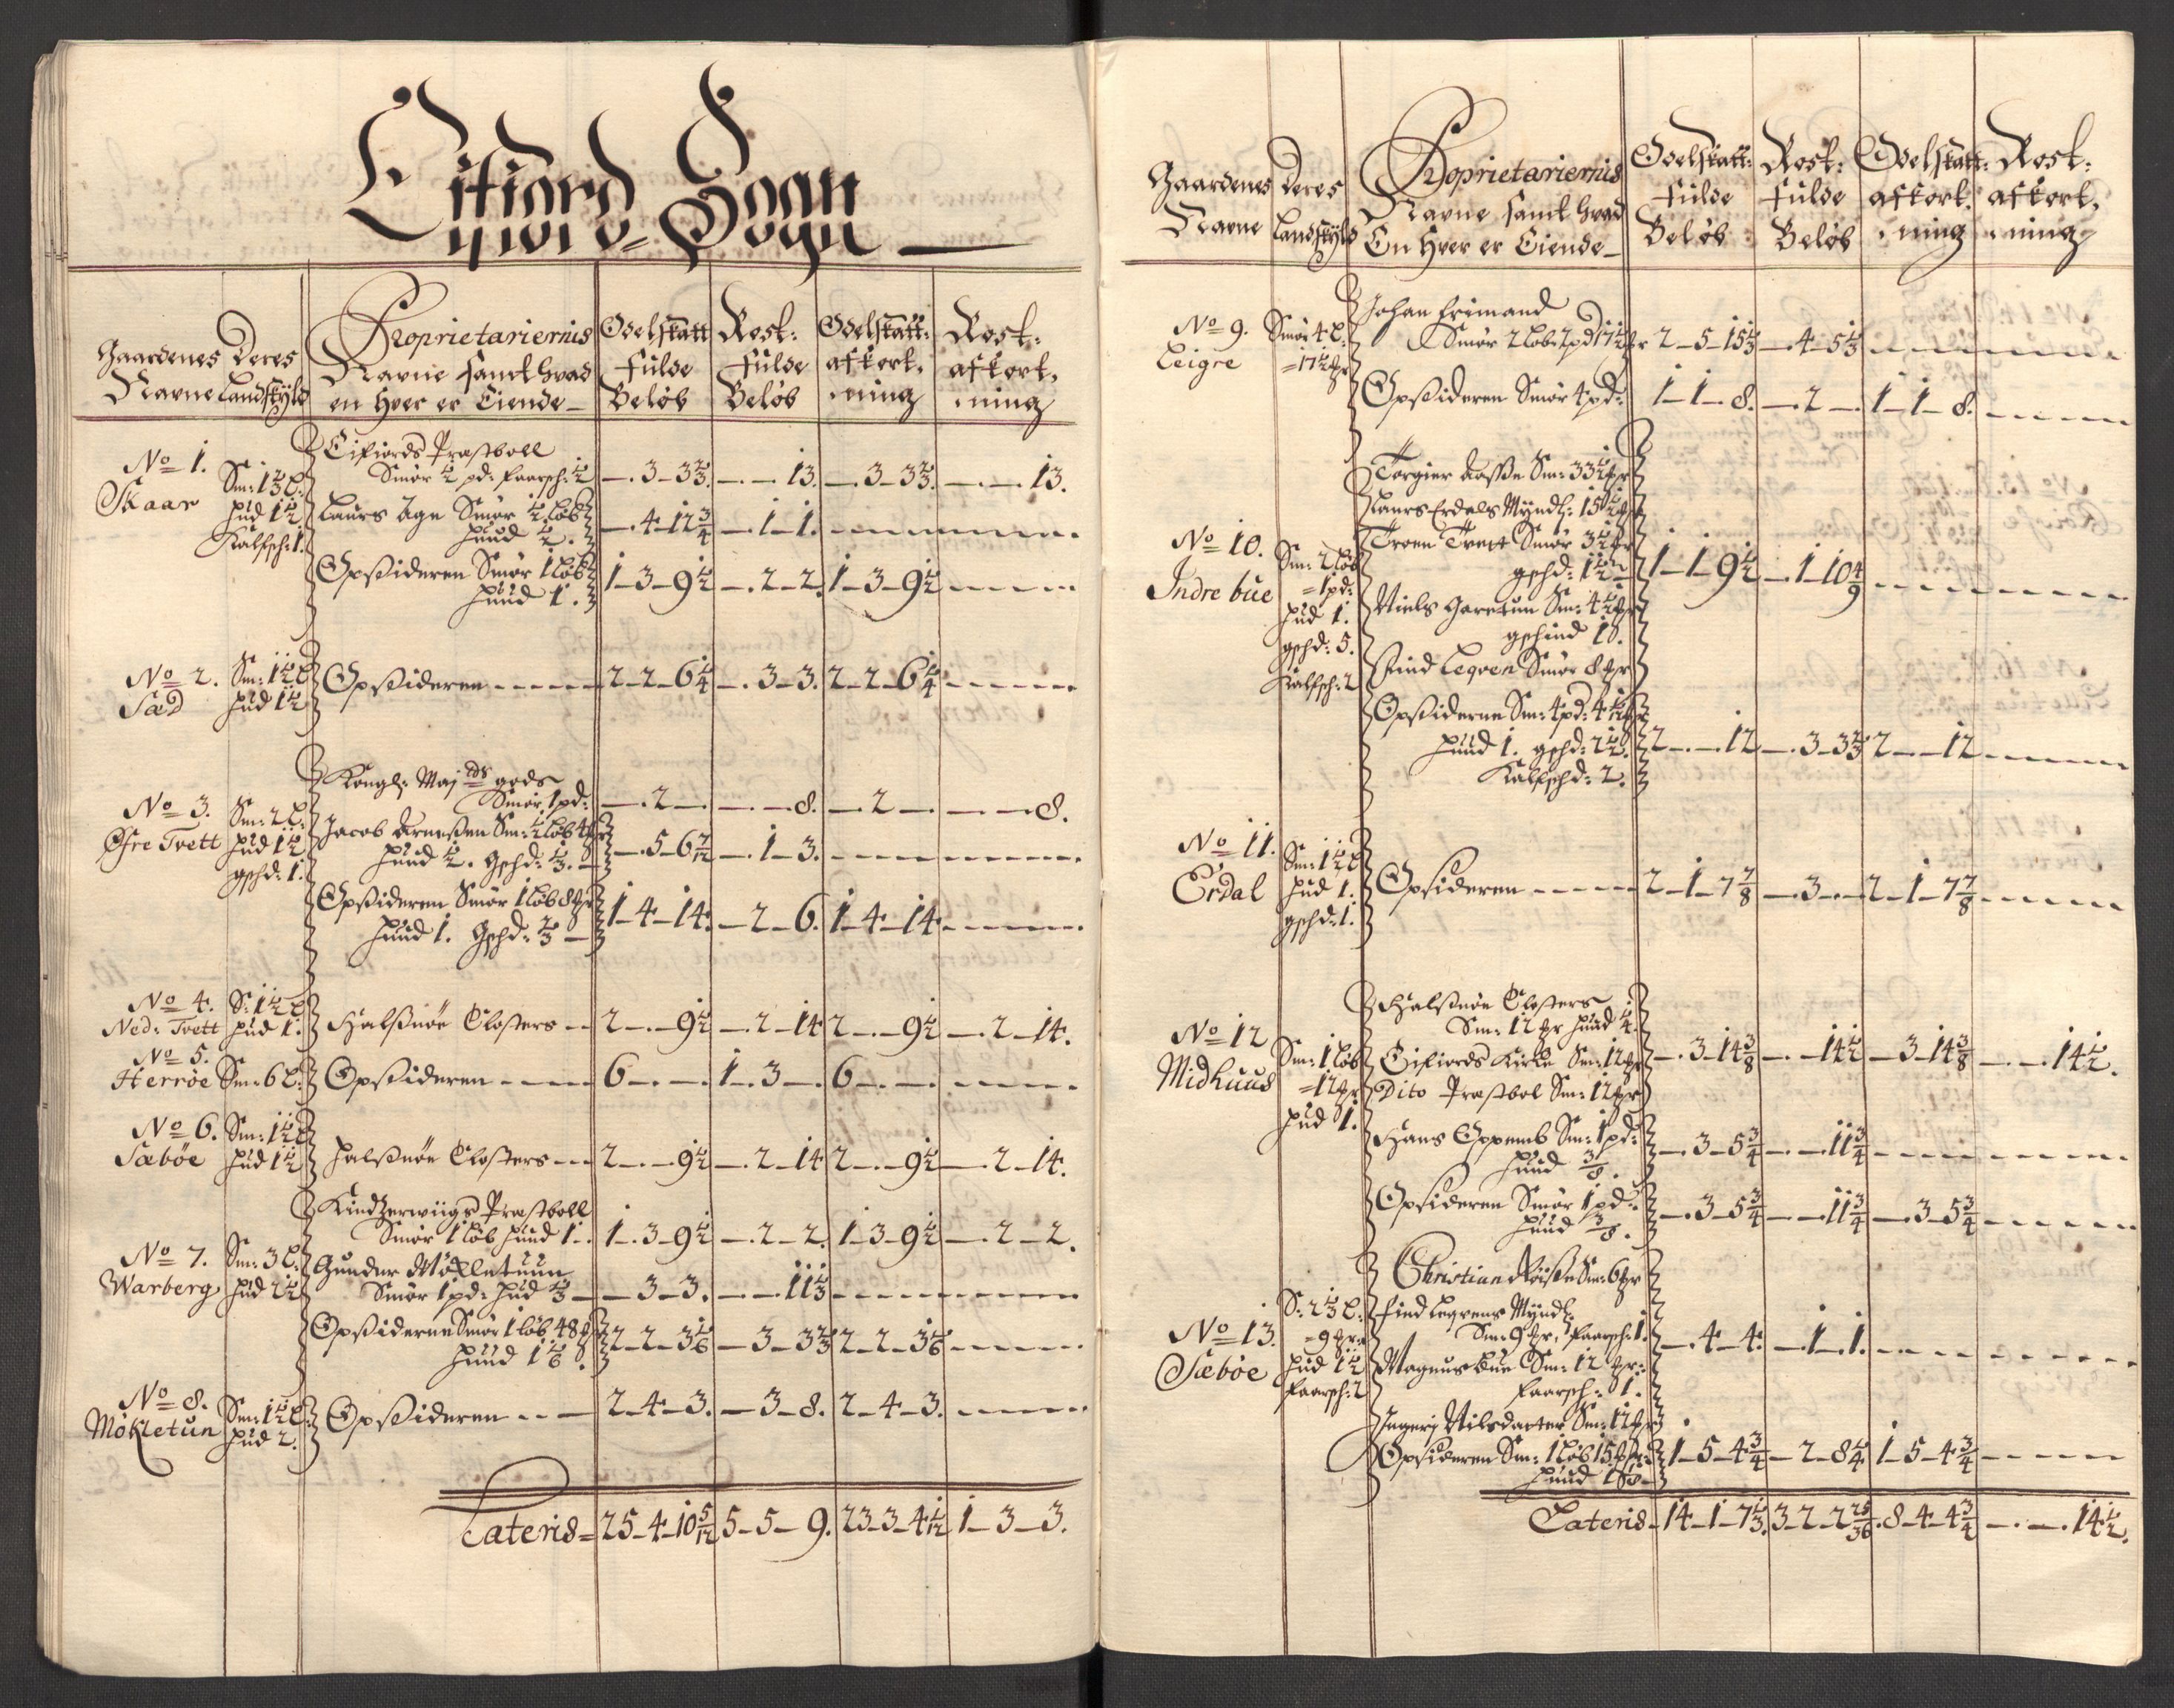 Eifiord Sogn
Gaardenes Navne
Deres Landskyld
Proprietariernis Navne samt hvad en hver er Eiende
Odelskatt fulde Beløb
Rost: fulde Beløb
Odelskatt: afkort. ning
Rost: afkort. ning
No 1. Skaar
Sm: 1 1/2 l: hud 1 1/2 Kalfsch: 1.
Eifiords Præstboll
Smør 1/2 pd: faarsch: 1/2 -. 3-3 2/3. -. - 13. -. 3-3 2/3. -. - 13.
Laurs Age Smør 1/2 løb
huud 1/2. -. 4-12 3/4 -. 1-1.
Opsideren Smør 1 løb
huud 1. 1-3-9 1/2 -. 2-2. 1-3-9 1/2
No 2. Sæd
Sm: 1 1/2 l hud 1 1/2
Opsideren 2-2-6 1/4 -. 3-3. 2-2-6 1/4
No 3. Øfre Tvett
Sm: 2 l: hud 1 1/2 gschd: 1.
Kongl: Maj tds gods
Smør 1 pd: -. 2-. -. - 8. -. 2-. -. - 8.
Jacob Arnessen Sm: 1/2 løb
huud 1/2. Gschd: 1/3. -. 5-6 7/12 -. 1-3.
Opsideren Smør 1 løb 8
huud 1. Gschd: 2/3 1-4-14. -2-6. 1-4-14
No 4. Ned: Tvett
S: 1 1/2 l hud 1.
Halsnøe Closters 2-.-9 1/2 -. 2-14 2-.-9 1/2 -. 2-14.
No 5. Herrøe Sm: 6 l: Opsideren 6-.-. 1-3-. 6-.-.
No 6. Sæbøe
Sm: 1 1/2 l hud 1 1/2
Halsnøe Closters 2-.-9 1/2 -. 2-14 2-.-9 1/2 -. 2-14.
No 7. Warberg
Sm: 3 l: hud 2 1/2
Kindzerwiigs Præstboll
Smør 1 løb huud 1. 1-3-9 1/2 -. 2-2. 1-3-9 1/2 -. 2-2.
Gunder Møkletuun
Smør 1 pd: hud 1/3 -. 3-3. -. - 11 1/3
Opsiderne Smør 1 løb 48
huud 1 1/6. 2-2-3 1/6 -3-3 2/3 2-2-3 1/6
No 8. Møkletun
Sm: 1 1/2 l: hud 2.
Opsideren 2-4-3. -3-8. 2-4-3.
Lateris 25-4-10 5/12 5-5-9. 23-3-4 1/12 1-3-3.
Gaardenes Navne
Deres Landskyld
Proprietariernis Navne samt hvad En hver er Eiende
Odelskatt: fulde Beløb
Rost: fulde Beløb
Odelskatt: afkort. ning
Rost: afkort. ning
No 9. Leigre
Smør 4 l: 17 1/2
Johan Frimand
Smør 2 løb: 2 pd 17 1/2 2-5-15 1/3 -. 4-5 1/3
Opsideren Smør 4 pd: 1-1-8. -. 2-. 1-1-8.
No 10. Indre bue
Sm: 2 løb 1 pd: hud 1. gschd: 5. Kalfsch: 2
Torgier Aasse Sm: 33 1/2
Laurs Erdals Myndl: 15 1/2
Troen Tvett Smør 3 1/2
gschd: 1 1/2 1-1-9 1/2 -. 1-10 4/9
Niels Garetun Sm: 4 1/2
gschind 1.
Svind Legven Smør 8
Opsiderne Sm: 4 pd: 4 1/2
huud 1. gschd: 2 1/2. 2-.-12 -. 3-3 2/3 2-.-12
Kalfschd: 2.
No 11. Erdal
Sm: 1 1/2 l hud 1. gschd: 1.
Opsideren 2-1-7 7/8 -. 3-. 2-1-7 7/8
No 12 Midhuus
Sm: 1 løb 12 hud 1.
Halsnøe Closters
Sm: 12 huud 1/4
Eifiords Kirke Sm: 12 -. 3-14 3/8 -. - 14 1/2 -3-14 3/8 -. - 14 1/2.
Dito Præstbol Sm: 12
Hans Oppemb Sm: 1 pd:
huud 3/8. -. 3-5 3/4 -. - 11 3/4
Opsideren Smør 1 pd:
huud 3/8. -. 3-5 3/4 -. - 11 3/4 -. 3-5 3/4
No 13. Sæbøe
S: 2 1/3 l: 9 hud 1 1/2 faarsch: 2
Christian Sm: 6
Find Legrens Myndl:
Sm: 9, faarsch: 1. -. 4-4. -. 1-1.
Magnus bue Sm: 12
faarsch: 1.
Ingeri Nilsdatter Sm: 12
Opsideren Sm: 1 løb 15 1-5-4 3/4 -2-8 1/4 1-5-4 3/4
huud
Lateris 14-1-7 1/3. 3-2-2 25/36 8-4-4 3/4 -. - 14 1/2.